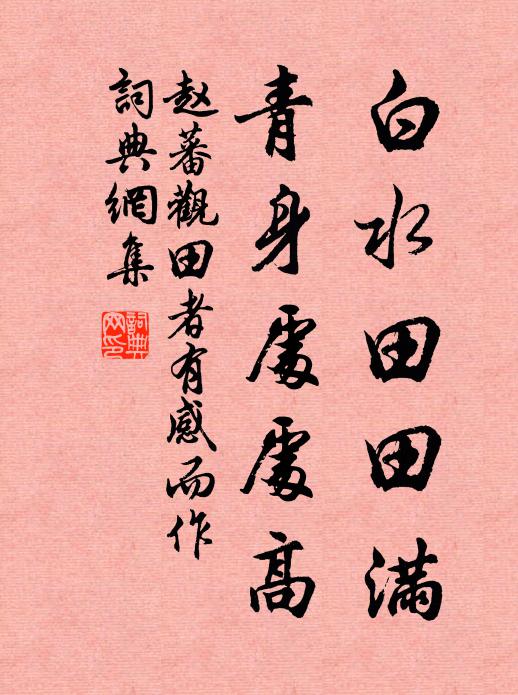 白水田田滿
青身處處高
赵蕃觀田者有感而作
詞典網集
詞典网印